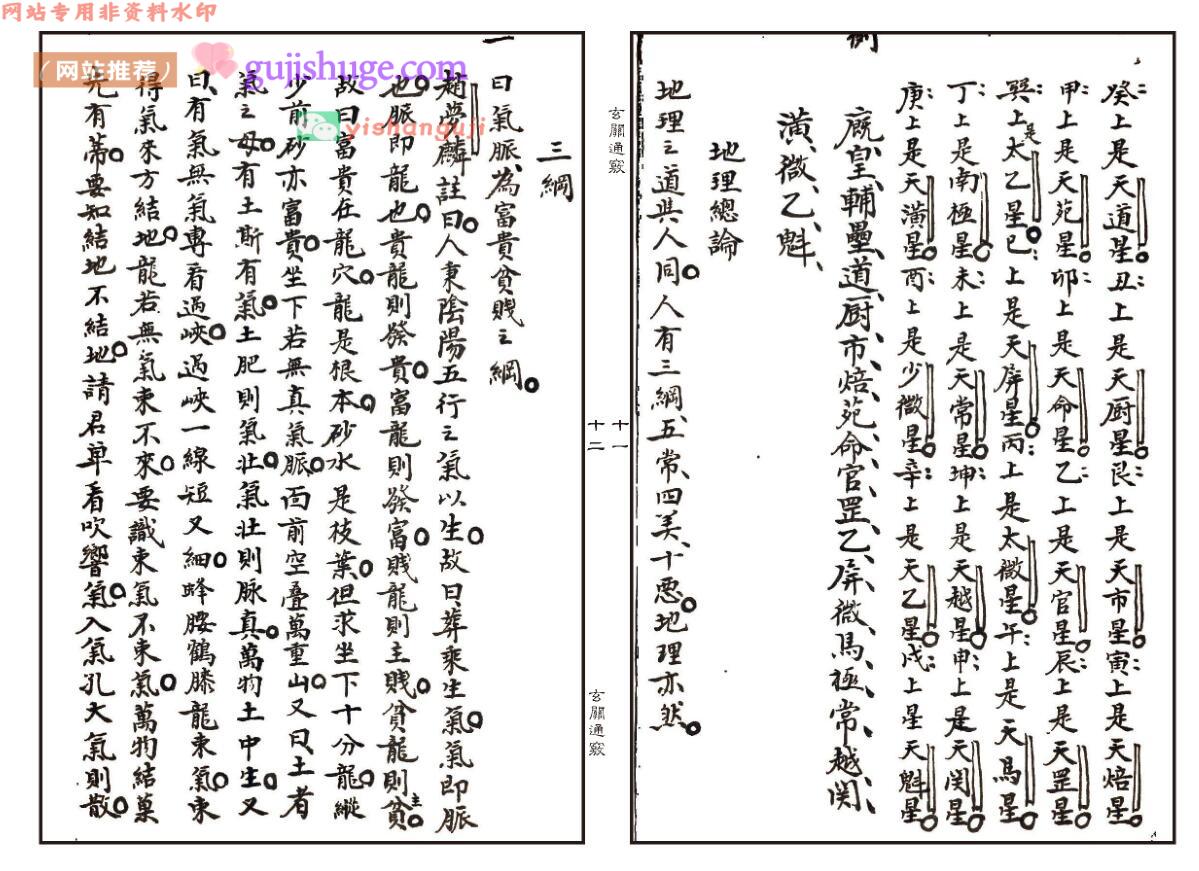 网站专用非资料水印
（网站推荐）
gujishuge.com
yishanguji
癸上是天道星丑上是天厨星艮上是天市星寅上是天焙星
甲上是天苑星卯上是天命星乙上是天官星辰上是天罡星
巽上太乙星巳上是天屏星丙上是太微星午上是天馬星
是
丁上是南極星未上是天常星坤上是天越星申上是天関星
庚上是天潢星酉上是少微星辛上是天乙星戍上星天魁星
廐、皇、輔、壘、道、厨、市、焙、苑、命、官、罡、乙、屏、微、馬、極、常、越、関、
潢、微、乙、魁、
地理總論
地理之道與人同人有三綱、五常、四美、十悪地理亦然
玄關通竅
十一
十二
玄關通竅
三綱
一
曰氣脈、為富貴貧賤之綱
趙夢麟註曰人秉陰陽五行之氣以生故曰葬乘生氣氣即脈
也脈即龍也貴龍則發貴富龍則發富賤龍則主賤貧龍則貧
主
故曰富貴在龍穴龍是根本砂水是枝葉但求坐下十分龍縱
少前砂亦富貴坐下若無真氣脈面前空叠萬重山又曰土者
氣之母有土斯有氣土肥則氣壯氣壯則脉真萬物土中生又
曰有氣無氣專看過峽過峽一線短又細蜂腰鶴膝龍束氣束
得氣來方結地龍若無氣束不來要識束氣不束氣萬物結菓
先有蒂要知結地不結地請君单看吹響氣入氣孔大氣則散